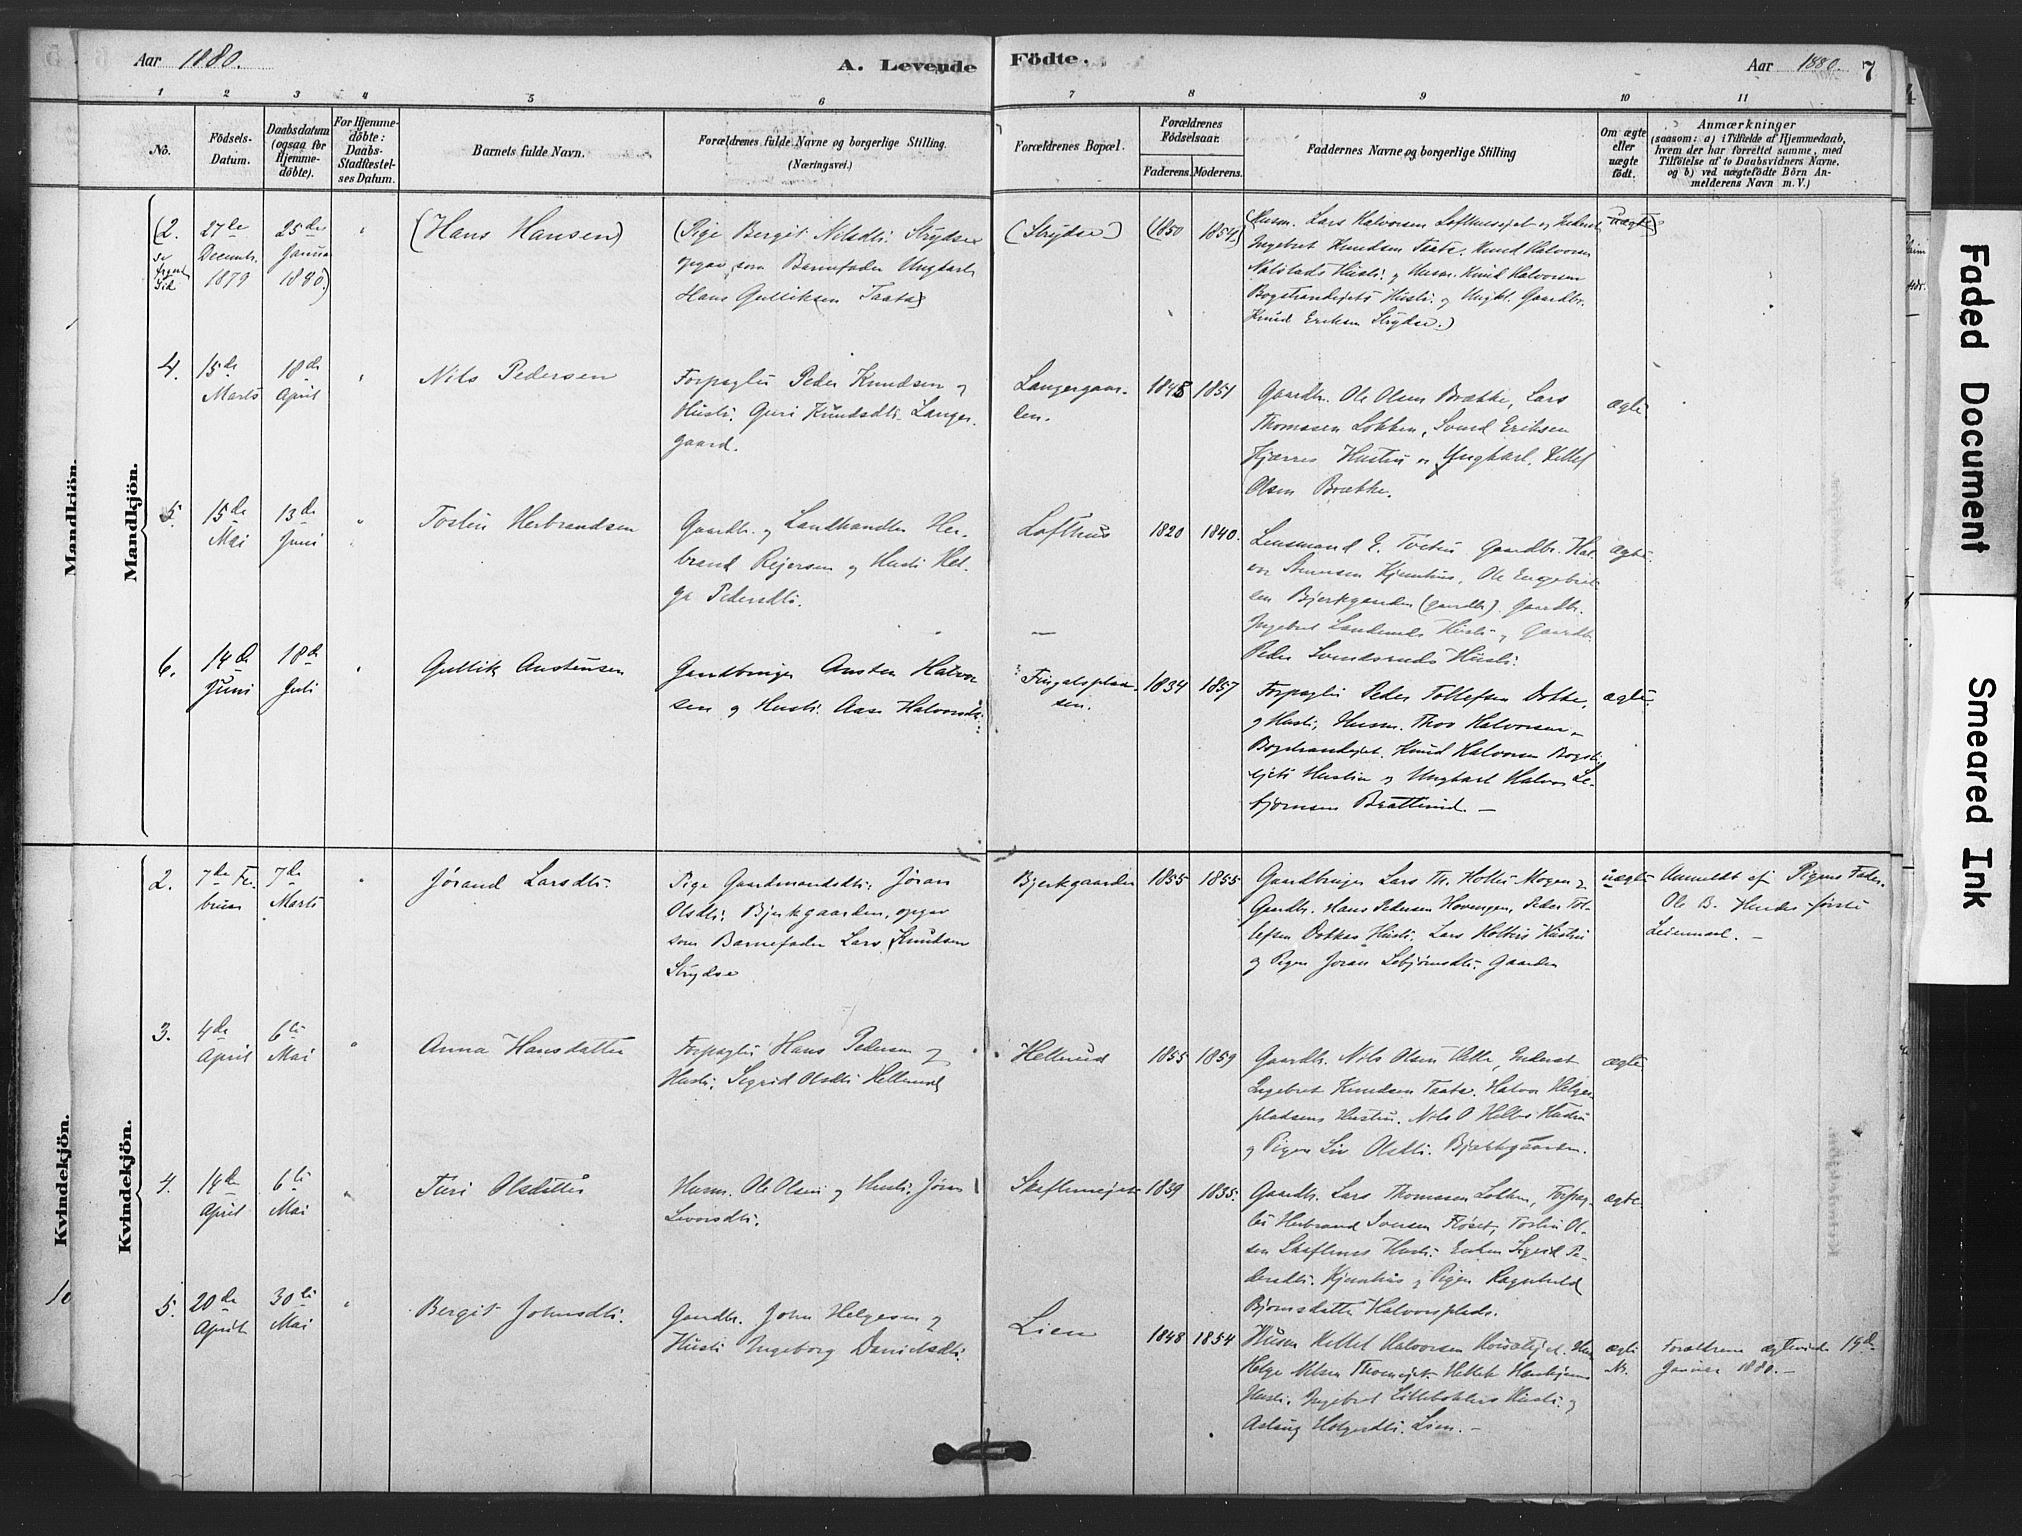 Aar 1880.
A. Levende Födte.
Aar 1880. 7
1 2 3 4 5 6 7 8 9 10 11
No.
Födsels-
Datum.
Daabsdatum
(ogsaa for
Hjemme-
döbte).
For Hjemme-
döbte:
Daabs-
Stadfæstel-
ses Datum.
Barnets fulde Navn.
Forældrenes fulde Navne og borgerlige Stilling.
(Næringsvei.)
Forældrenes Bopæl.
Forældrenes
Födselsaar.
Faderens. Moderens.
Faddernes Navne og borgerlige Stilling
Om ægte
eller
uægte
födt.
Anmærkninger
(saasom: a) i Tilfælde af Hjemmedaab,
hvem der har forrettet samme, med
Tilföielse af to Daabsvidners Navne,
og b) ved uægtefödte Börn An-
melderens Navn m. V.)
Mandkjön.
Mandkjön.
(2.
27de
Decembr.
1879
25de
Januar
1880)
(Hans Hansen)
(Pige Bergit Nilsdtr. Strydse
opgav som Barnefader Ungkarl
Hans Gulliksen Taata)
(Strydse)
(1850 1854)
(Husm. Lars Halvorsen Lofthusejet og Inderst
Ingebret Knudsen Taata. Knud Halvorsen
Hustr. og Husm. Knud Halvorsen
Bogstrandejets Hustr. og Ungk. Gaardbr.
Knud Eriksen Strydse.)
uægte)
4.
15de
Marts
18de
April
Nils Pedersen
Forpagter Peder Knudsen og
Hustr. Guri Knudsdtr. Langer-
gaard.
Langergaar-
den.
1848 1851
Gaardbr. Ole Olsen Brække, Lars
Thomasen Lokken, Svend Eriksen
Hustru og Ungkarl. Kittel
Olsen Brække.
ægte
5.
15de
Mai
13de
Juni
Tosten Herbrandsen
Gaardbr. og Landhandler Her-
brand Reijersen og Hustr. Hel-
ga Pedersdtr.
Lofthus
1820 1840.
Lensmand E. Gaardbr. Hal-
vor Kjemhus, Ole Engebret-
sen Bjerkgaarden (gaardbr). Gaardbr.
Ingebret Hustr. og Gaardbr.
Peder Svendsruds Hustr.
ægte
6.
14de
Juni
18de
Juli
Gullik Anstensen
Gaardbruger Ansten Halvor
sen og Hustr. Aase Halvorsdtr.
Fingalsplad-
sen.
1834 1857
Forpagter Peder Tollefsen Dokke,
og Hustr., Husm. Thor Halvorsen
Bogstrandejet. Knud Halvorsen Bogstr.
ejets Hustru og Ungkarl Halvor Le-
bjørnsen Bratterud. –
ægte
Kvindekjön.
Kvindekjön.
2.
7de Fe-
bruar
7de
Marts
Jørand Larsdtr.
Pige Gaardmandsdtr. Jøran
Olsdtr. Bjerkgaarden, opgav
som Barnefader Lars Knudsen
Strydse
Bjerkgaarden
1855 1855
Gaardbruger Lars Th. Holtes Mogen og
Gaardbr. Hans Pedersen Hovengen, Peder Tol-
lefsen Dokkas Hustr. Lars Holtes Hustru
og Pigen Jøran Lebjørnsdtr. Gaarden
uægte
Anmeldt af Pigens Fader
Ole B. Hendes første
Leiermaal. –
3.
4de
April
6te
Mai
Anna Hansdatter
Forpagter Hans Pedersen og
Hustr. Sigrid Olsdtr. Hellerud
Hellerud
1855 1859
Gaardbr. Nils Olsen Inderst
Ingebret Knudsen Taata. Halvor Helges
pladsens Hustru. Nils O Hustru
og Pigen Liv Olsdtr. Bjerkgaarden.
ægte
4.
14de
April
6te
Mai
Turi Olsdatter
Husm. Ole Olsen og Hustr. Jøran
Levorsdtr.
1839 1855.
Gaardbr. Lars Thomasen Lokken, Forpag-
ter Herbrand Iversen Tostin Ol-
sen Hustr. Enken Sigrid Pe-
dersdtr. Kjemhus og Pigen Ragnhild
Bjørnsdatter Halvorsplads.
ægte.
10
5.
20de
April
30te
Mai
Bergit Johnsdtr.
Gaardbr. John Helgesen og
Hustr. Ingeborg Danielsdtr.
Lien
1848 1854
Husm Kittel Halvorsen
Helge Nilsen
Hustr. Ingebret Hustr. og
Aslaug Helgesdtr. Lien. –
ægte
Forældrene ægteviede 19de
Januar 1880. –
Faded Document
Smeared Ink